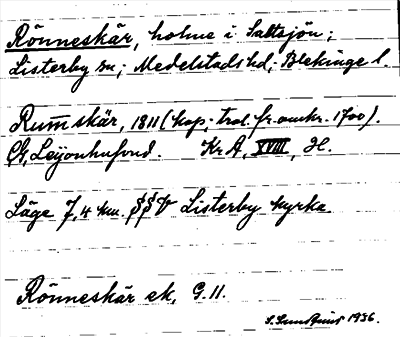 Rönneskär, holme i Saltsjön;
Listerby sn; Medelstads hd; Blekinge l.
Rumskär, 1811 (kop. trol. fr. omkr. 1700).
G. Leijonhufvud. Kr A, XVIII, H.
Läge 7,4 km. SSV Listerby kyrka.
Rönneskär ek, G.11.
1936.